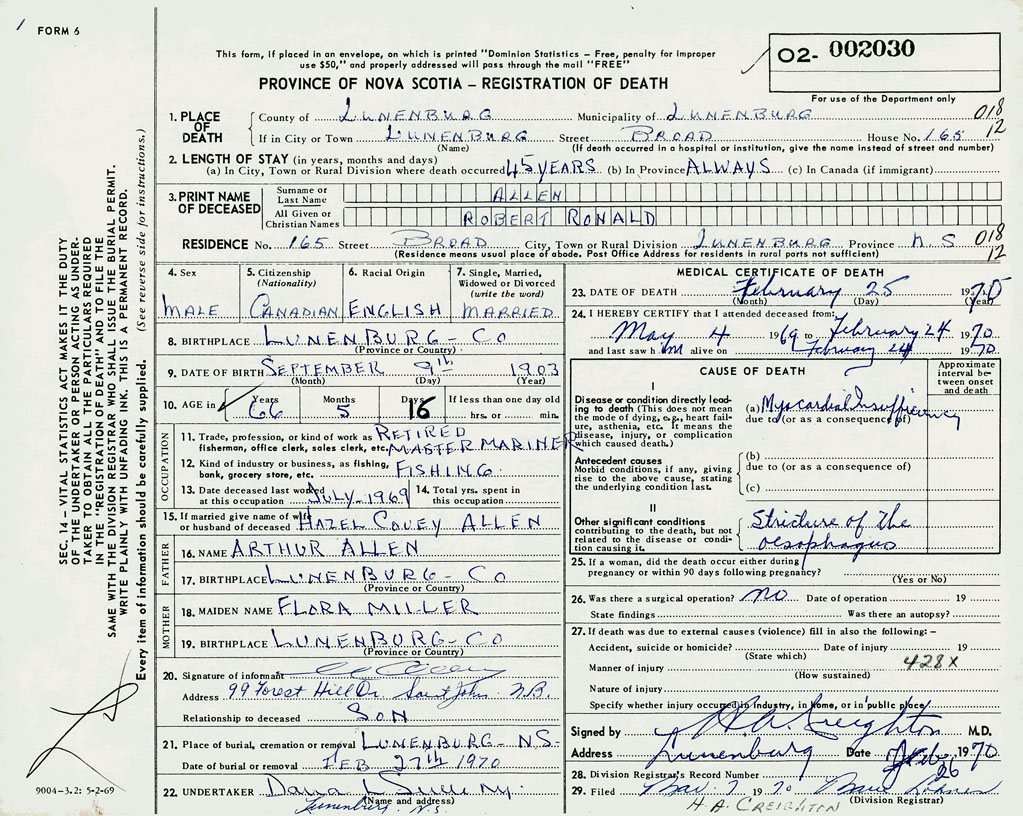 FORM 6
This form, if placed in an envelope, on which is printed "Dominion Statistics – Free, penalty for improper
use $50," and properly addressed will pass through the mail "FREE"
O2- 002030
PROVINCE OF NOVA SCOTIA – REGISTRATION OF DEATH
For use of the Department only
1. PLACE OF DEATH County of LUNENBURG Municipality of LUNENBURG 018
If in City or Town LUNENBURG Street BROAD House No. 165 12
(Name) (If death occurred in a hospital or institution, give the name instead of street and number)
2. LENGTH OF STAY (in years, months and days)
(a) In City, Town or Rural Division where death occurred 45 YEARS (b) In Province ALWAYS (c) In Canada (if immigrant)
3. PRINT NAME OF DECEASED Surname or Last Name ALLEN
All Given or Christian Names ROBERT RONALD
RESIDENCE No. 165 Street BROAD City, Town or Rural Division LUNENBURG Province N.S 018
(Residence means usual place of abode. Post Office Address for residents in rural parts not sufficient) 12
4. Sex 5. Citizenship (Nationality) 6. Racial Origin 7. Single, Married, Widowed or Divorced (write the word)
MALE CANADIAN ENGLISH MARRIED
8. BIRTHPLACE LUNENBURG - CO
(Province or Country)
9. DATE OF BIRTH SEPTEMBER 9th 1903
(Month) (Day) (Year)
10. AGE in Years Months Days If less than one day old
66 5 16 hrs. or min.
OCCUPATION
11. Trade, profession, or kind of work as RETIRED
fisherman, office clerk, sales clerk, etc. MASTER MARINER
12. Kind of industry or business, as fishing, bank, grocery store, etc. FISHING
13. Date deceased last worked at this occupation JULY-1969 14. Total yrs. spent in this occupation
15. If married give name of wife or husband of deceased HAZEL COVEY ALLEN
FATHER
16. NAME ARTHUR ALLEN
17. BIRTHPLACE LUNENBURG - CO
(Province or Country)
MOTHER
18. MAIDEN NAME FLORA MILLER
19. BIRTHPLACE LUNENBURG - CO
(Province or Country)
20. Signature of informant
Address 99 Forest Hill Dr. Saint John N.B.
Relationship to deceased SON
21. Place of burial, cremation or removal LUNENBURG - NS-
Date of burial or removal FEB 27th 1970
22. UNDERTAKER
(Name and address)
Lunenburg N.S.
MEDICAL CERTIFICATE OF DEATH
23. DATE OF DEATH February 25 1970
(Month) (Day) (Year)
24. I HEREBY CERTIFY that I attended deceased from:
May 4 1969 to February 24 1970
and last saw him alive on February 24 1970
CAUSE OF DEATH
Approximate interval between onset and death
I
Disease or condition directly leading to death (This does not mean the mode of dying, e.g., heart failure, asthenia, etc. It means the disease, injury, or complication which caused death.)
(a) Myocardial Insufficiency
due to (or as a consequence of)
Antecedent causes
Morbid conditions, if any, giving rise to the above cause, stating the underlying condition last.
(b)
due to (or as a consequence of)
(c)
II
Other significant conditions contributing to the death, but not related to the disease or condition causing it.
Stricture of the
oesophagus
25. If a woman, did the death occur either during
pregnancy or within 90 days following pregnancy?
(Yes or No)
26. Was there a surgical operation? NO Date of operation 19
State findings Was there an autopsy?
27. If death was due to external causes (violence) fill in also the following: –
Accident, suicide or homicide? Date of injury 19
(State which) 428X
Manner of injury
(How sustained)
Nature of injury
Specify whether injury occurred in industry, in home, or in public place
Signed by H A Creighton M.D.
Address Lunenburg Date Feb 26 1970
28. Division Registrar's Record Number
29. Filed Mar. 7 1970
(Division Registrar)
H. A. CREIGHTON
SEC. 14 – VITAL STATISTICS ACT MAKES IT THE DUTY
OF THE UNDERTAKER OR PERSON ACTING AS UNDER-
TAKER TO OBTAIN ALL THE PARTICULARS REQUIRED
IN THE "REGISTRATION OF DEATH" AND TO FILE THE
SAME WITH THE DIVISION REGISTRAR WHO SHALL ISSUE THE BURIAL PERMIT.
WRITE PLAINLY WITH UNFADING INK. THIS IS A PERMANENT RECORD.
Every item of information should be carefully supplied. (See reverse side for instructions.)
9004-3.2: 5-2-69